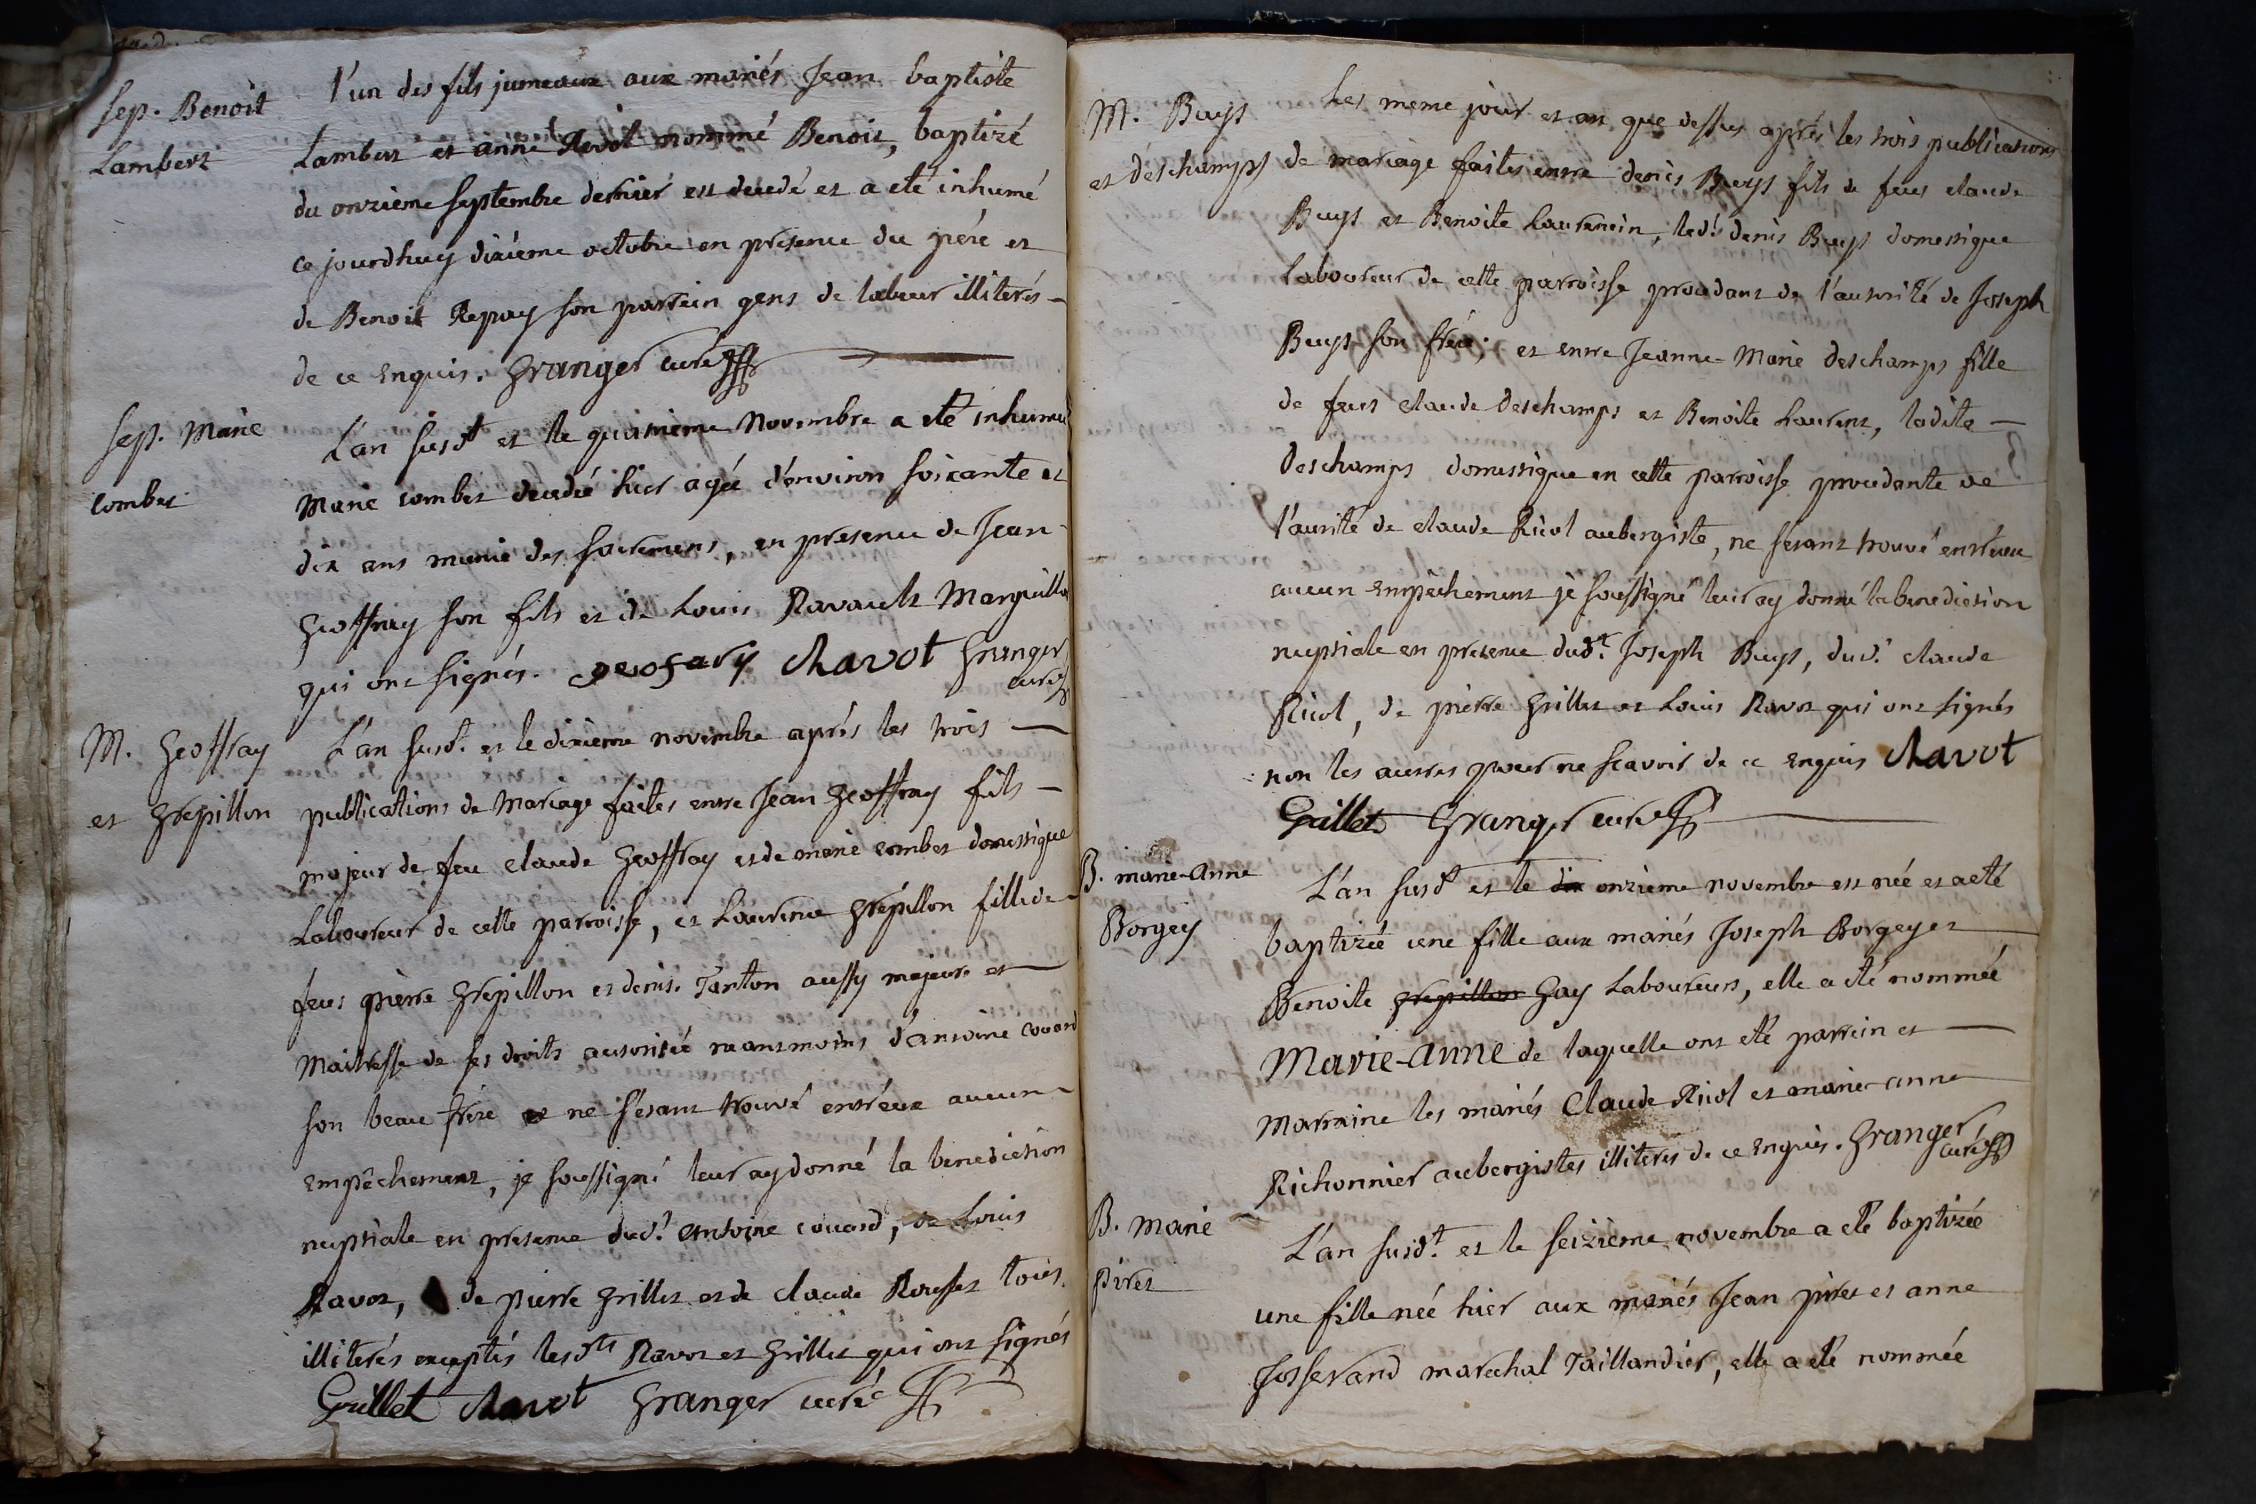 Sep. Benoit
Lambert
l'un des fils jumeaux aux mariés Jean baptiste
Lambert et anne Revol nommé Benoit, baptizé
du onzieme septembre dernier est decedé et a eté inhumé
ce jourdhuy dixiéme octobre en presence du pére et
de Benoit Repay son parrein gens de labeur illiterés -
de ce enquis. Granger curé
Sep. Marie
combet
L'an susdt et le quatrieme Novembre a eté inhumée
Marie combet decedée hier agée d'environ soixante et
dix ans munie des sacremens, en presence de Jean
Geoffray son fils et de Louis Ravault Marguillier
qui ont signés. geofary Ravot Granger
curé
M. Geoffray
et Grépillon
L'an susdt. et le dixieme novembre aprés les trois —
publications de Mariage faites entre Jean Geoffray fils —
majeur de feu claude Geoffray et de marie combet domestique
Laboureur de cette parroisse, et Laurence Grépillon fille de
feus piérre Grépillon et denise Tanton aussy majeure et —
Maitresse de ses droits autorisée neantmoins d'antoine couard
son beau frére et ne s'etant trouvé entréux aucun -
empêchement, je soussigné leur ay donné la benediction
nuptiale en presence dudt. antoine couard, de Louis
Ravot, de pierre Grillet et de claude Rousset tous
illiterés exceptés lesdts Ravot et Grillet qui ont signés
Grillet Ravot Granger curé
M. Buys
et deschamps
Les meme jour et an que dessus aprés les trois publications
de mariage faites entre denis Buys fils de feus claude
Buys et Benoite Laurencin, ledt. denis Buys domestique
laboureur de cette parroisse procedant de l'autorité de Joseph
Buys son frére; et entre Jeanne-Marie deschamps fille
de feus claude deschamps et Benoite Laurent, ladite —
deschamps domestique en cette parroisse procedante de
l'aurité de claude Ricol aubergiste, ne s'etant trouvé entréux
aucun empêchement je soussigné leur ay donné la benediction
nuptiale en presence dudt. Joseph Buys, dud. claude
Ricol, de piérre Grillet et Louis Ravot qui ont signés
non les autres pour ne scavoir de ce enquis Ravot
Grillet Granger curé
B. marie-anne
Borgey
L'an susdt et le dix onzieme novembre est née et a eté
baptizée une fille aux mariés Joseph Borgey et
Benoite grepillon Gay Laboureurs, elle a eté nommée
Marie-Anne de laquelle ont eté parrein et —
marraine les mariés Claude Ricol et marie-anne
Richonnier aubergistes illiterés de ce enquis. Granger
curé
B. marie
piret
L'an susdt. et le seizieme novembre a eté baptizée
une fille née hier aux mariés Jean piret et anne
Josserand marechal Taillandier, elle a eté nommée